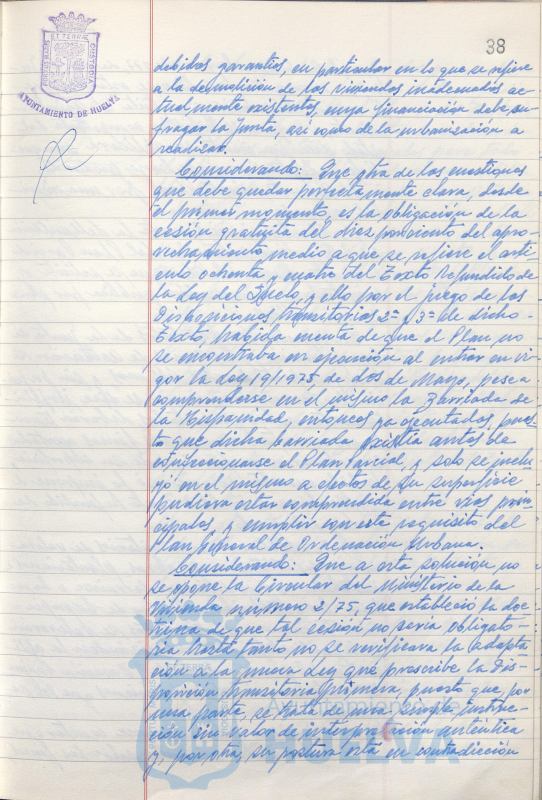 38
AYUNTAMIENTO DE HUELVA
debidas garantías, en particular en lo que se refiere
a la demolición de las viviendas inadecuadas ac-
tualmente existentes, cuya financiación debe su-
fragar la Junta, así como de la urbanización a
realizar.
Considerando: Que otra de las cuestiones
que debe quedar perfectamente clara, desde
el primer momento, es la obligación de la
cesión gratuita del diez por ciento del apro-
vechamiento medio a que se refiere el artí-
culo ochenta y cuatro del Texto Refundido de
la Ley del Suelo, y ello por el juego de las
Disposiciones transitorias 2ª y 3ª de dicho
Texto, habida cuenta de que el Plan no
se encontraba en ejecución al entrar en vi-
gor la Ley 19/1975, de dos de Mayo, pese a
comprenderse en el mismo la Barriada de
la Hispanidad, entonces ya ejecutada, pues-
to que dicha barriada existía antes de
el Plan Parcial, y solo se inclu-
yó en el mismo a efectos de que su superficie
pudiera estar comprendida entre vías prin-
cipales, y cumplir con este requisito del
Plan General de Ordenación Urbana.
Considerando: Que a esta solución no
se opone la Circular del Ministerio de la
Vivienda número 2/75, que estableció la doc-
trina de que tal cesión no sería obligato-
ria hasta tanto no se verificara la adapta-
ción a la nueva Ley que prescribe la Dis-
posición transitoria primera, puesto que, por
una parte, se trata de una simple instruc-
ción sin valor de interpretación auténtica
y, por otra, su postura está en contradicción
Ayuntamiento de
HUELVA